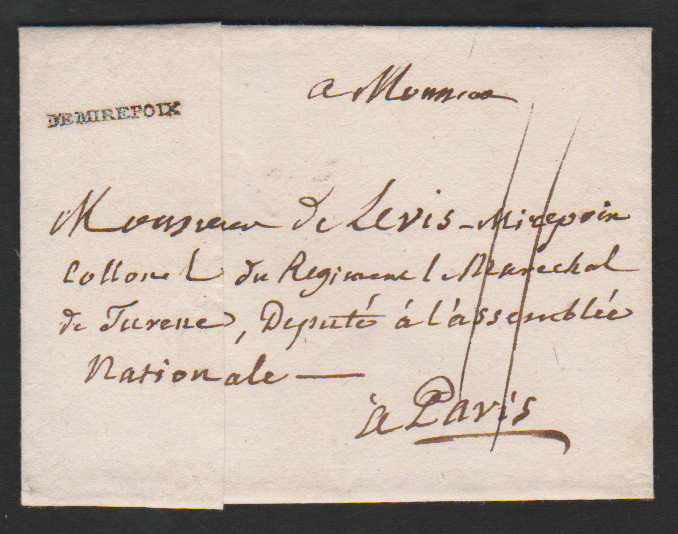 DEMIREPOIX
a Monsieur
Monsieur de Levis-Mirepoix
Collonel du Regiment le Marechal
de Turene, Deputé à l'assemblée
Nationale —
à Paris